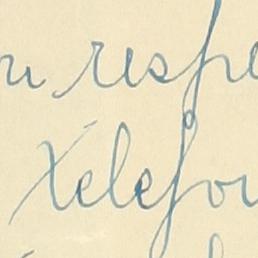 n respe
Xelefon